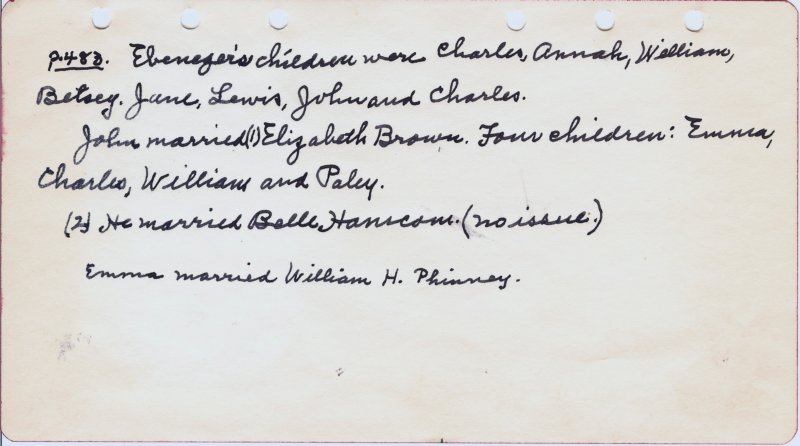 p.482. Ebenezer's children were Charles, Annah, William,
Betsey. Jane, Lewis, John and Charles.
John married (1) Elizabeth Brown. Four children: Emma,
Charles, William and Paley.
(2) He married Belle Hanscom. (no issue.)
Emma married William H. Phinney.